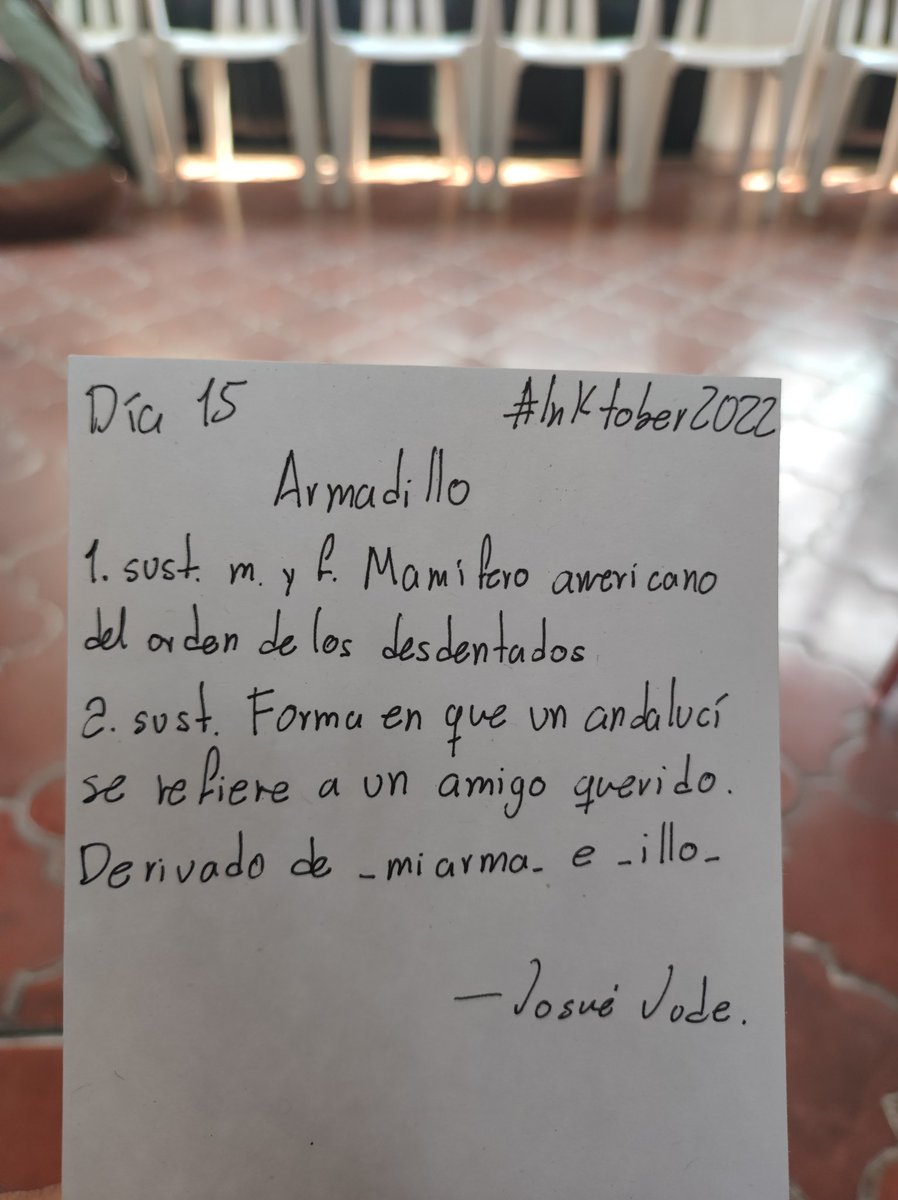 Día 15 #InKtober2022
Armadillo
1. sust. m. y f. Mamífero americano
del orden de los desdentados
2. sust. Forma en que un andalucí
se refiere a un amigo querido.
Derivado de _miarma_ e _illo_
— Josué Jode.